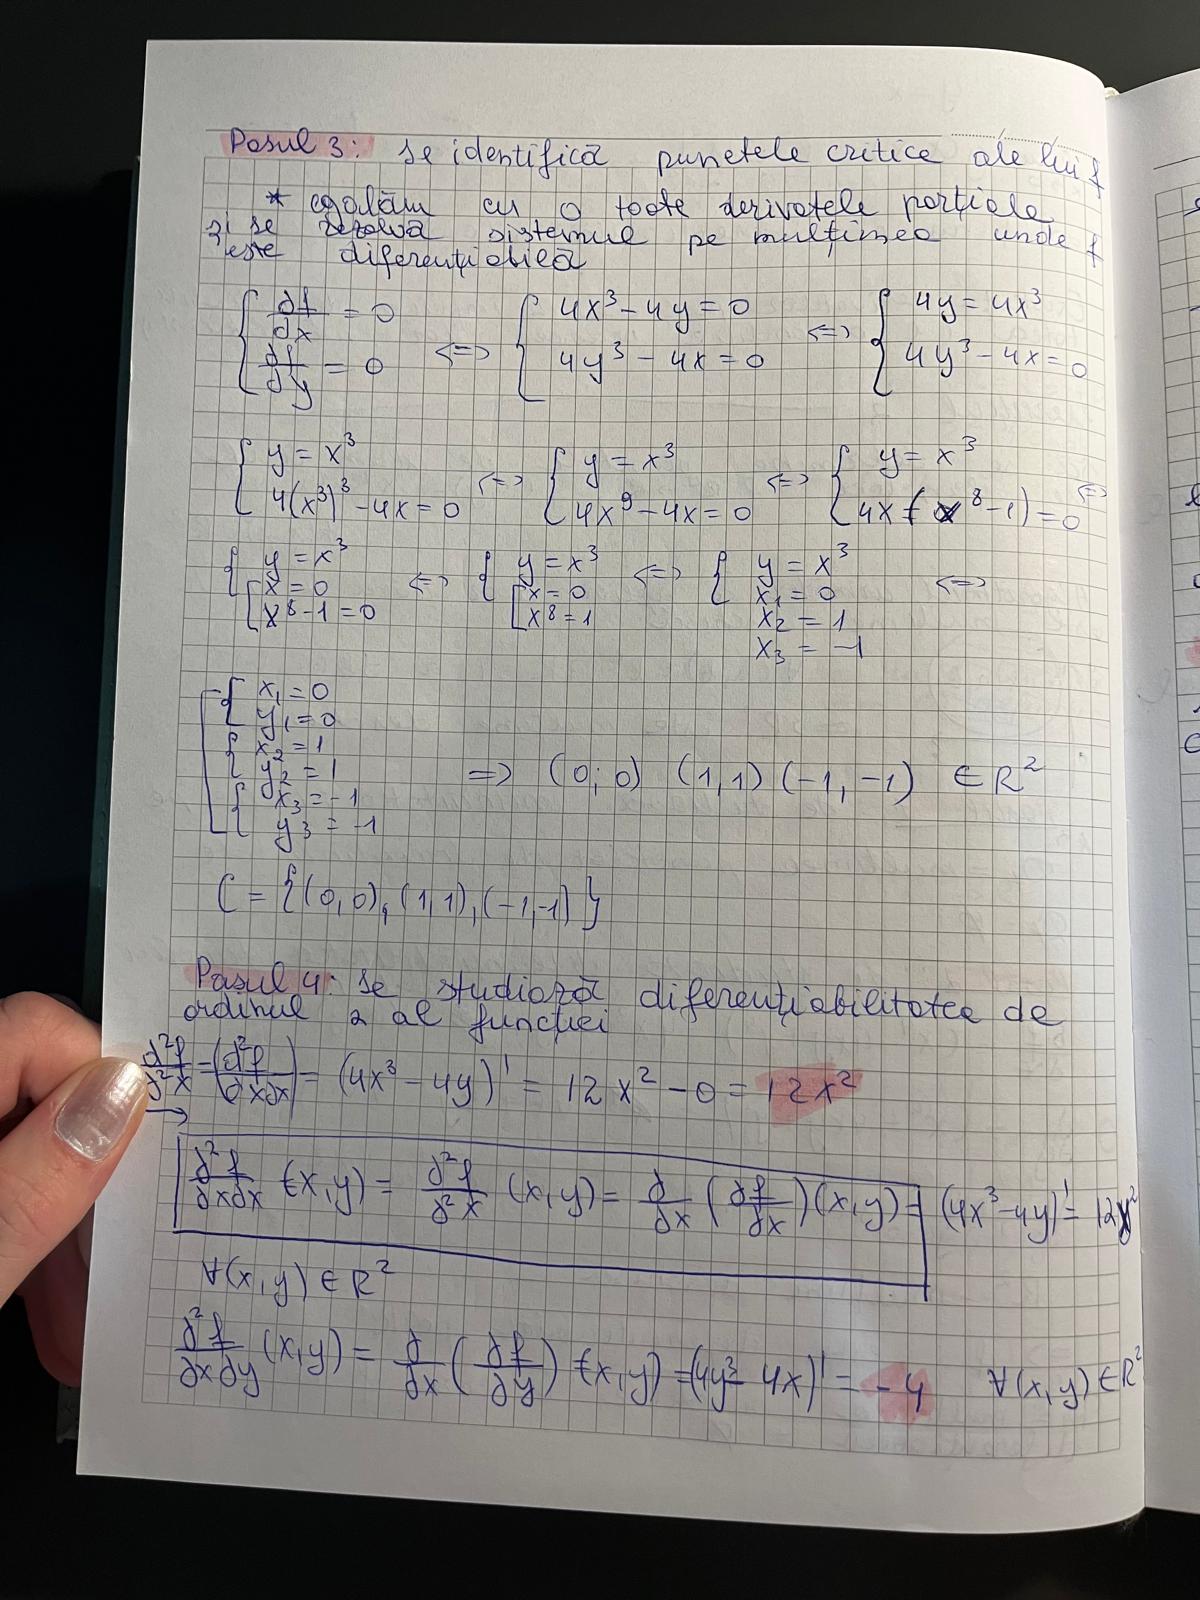 Pasul 3: se identifică punctele critice ale lui f
* egalăm cu 0 toate derivatele parțiale
și se rezolvă sistemul pe mulțimea unde f
este diferențiabilă
{ ∂f/∂x = 0 <=> { 4x³ - 4y = 0 <=> { 4y = 4x³
∂f/∂y = 0 4y³ - 4x = 0 4y³ - 4x = 0
{ y = x³ <=> { y = x³ <=> { y = x³
4(x³)³ - 4x = 0 4x⁹ - 4x = 0 4x(x⁸ - 1) = 0 <=>
{ y = x³ <=> { y = x³ <=> { y = x³ <=>
[ x = 0 [ x = 0 x₁ = 0
x⁸ - 1 = 0 x⁸ = 1 x₂ = 1
x₃ = -1
[ { x₁ = 0
y₁ = 0
{ x₂ = 1
y₂ = 1 => (0; 0) (1, 1) (-1, -1) ∈ R²
{ x₃ = -1
y₃ = -1
C = {(0, 0), (1, 1), (-1, -1)}
Pasul 4: se studiază diferențiabilitatea de
ordinul 2 al funcției
∂²f/∂²x = (∂²f/∂x∂x) = (4x³ - 4y)' = 12x² - 0 = 12x²
→
∂²f/∂x∂x (x, y) = ∂²f/∂²x (x, y) = ∂/∂x (∂f/∂x)(x, y) = (4x³ - 4y)' = 12x²
∀(x, y) ∈ R²
∂²f/∂x∂y (x, y) = ∂/∂x (∂f/∂y) (x, y) = (4y³ - 4x)' = -4 ∀(x, y) ∈ R²